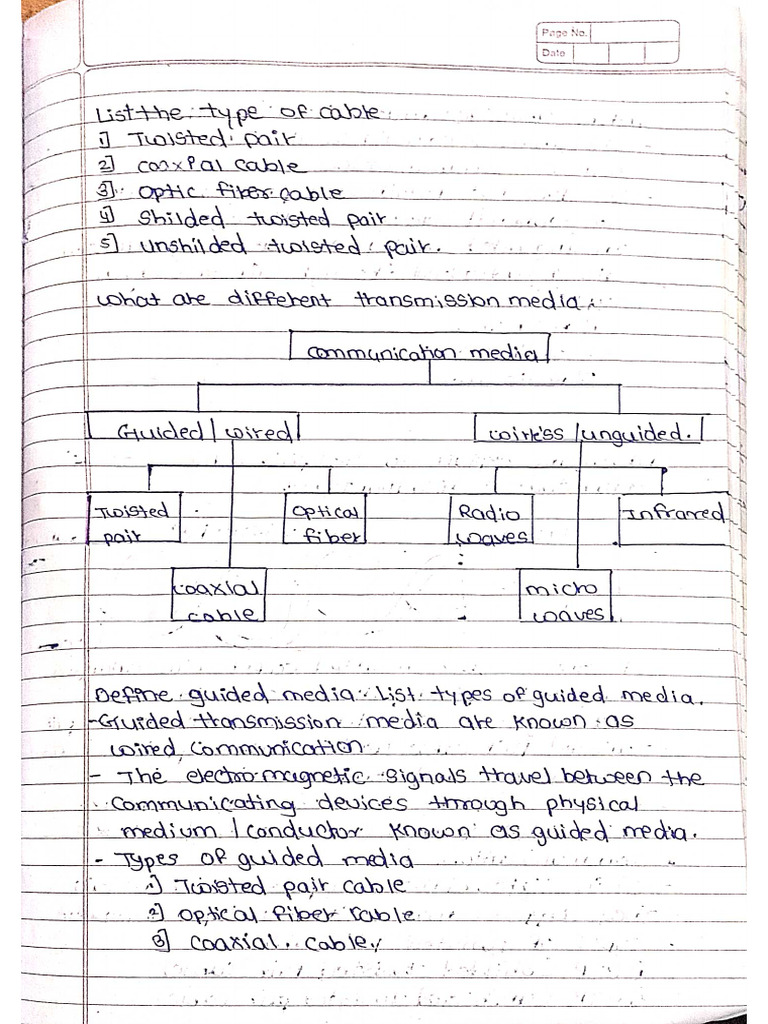 Page No.
Date
List the type of cable
1] Twisted pair
2] coaxial cable
3] optic fiber cable
4] Shilded twisted pair
5] unshilded twisted pair.
What are different transmission media.
communication media
Guided / wired
wirless / unguided.
Twisted
pair
optical
fiber
Radio
waves
Infrared
coaxial
cable
micro
waves
Define guided media. List types of guided media.
- Guided transmission media are known as
wired communication
- The electromagnetic signals travel between the
communicating devices through physical
medium / conductor known as guided media.
- Types of guided media
1] Twisted pair cable
2] optical fiber cable
3] coaxial cable